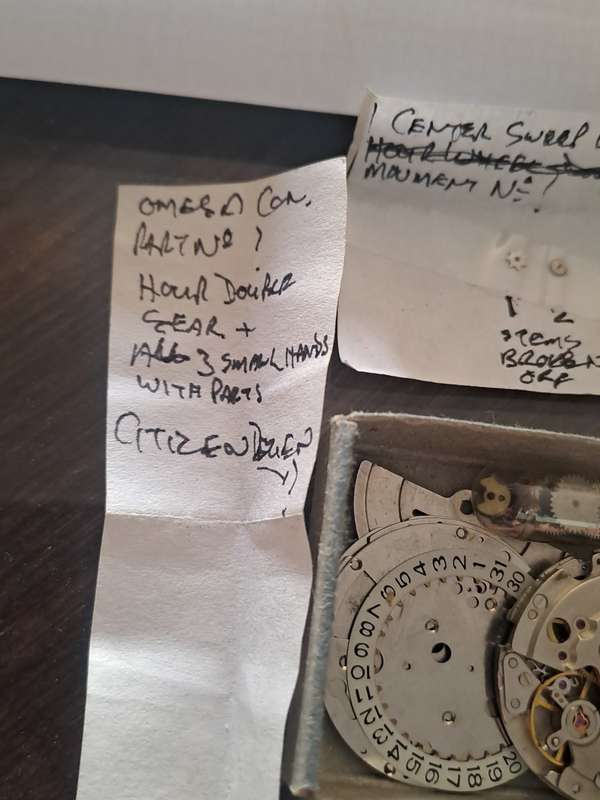 OMEGA CON.
PART Nº ?
HOUR DOUBLE
GEAR +
ALL 3 SMALL HANDS
WITH PARTS
CITIZEN
CENTER SWEEP
MOUMENT Nº?
1 2
STEMS
BROKEN
OFF
30
31
1
2
3
4
5
6
7
8
9
10
11
12
13
14
15
16
17
18
19
20